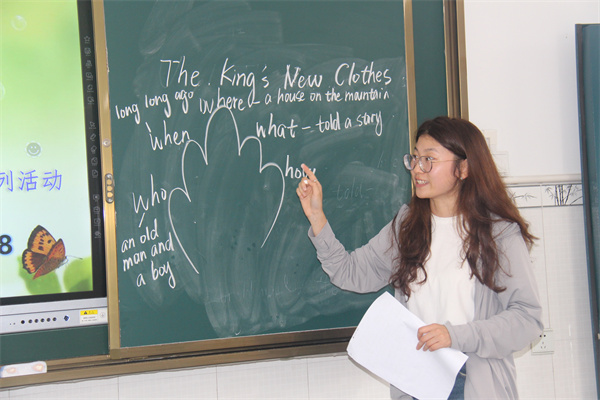 The King's New Clothes
long long ago
where - a house on the mountain
When
what - told a story
how
Who
an old
man and
a boy
列活动
8